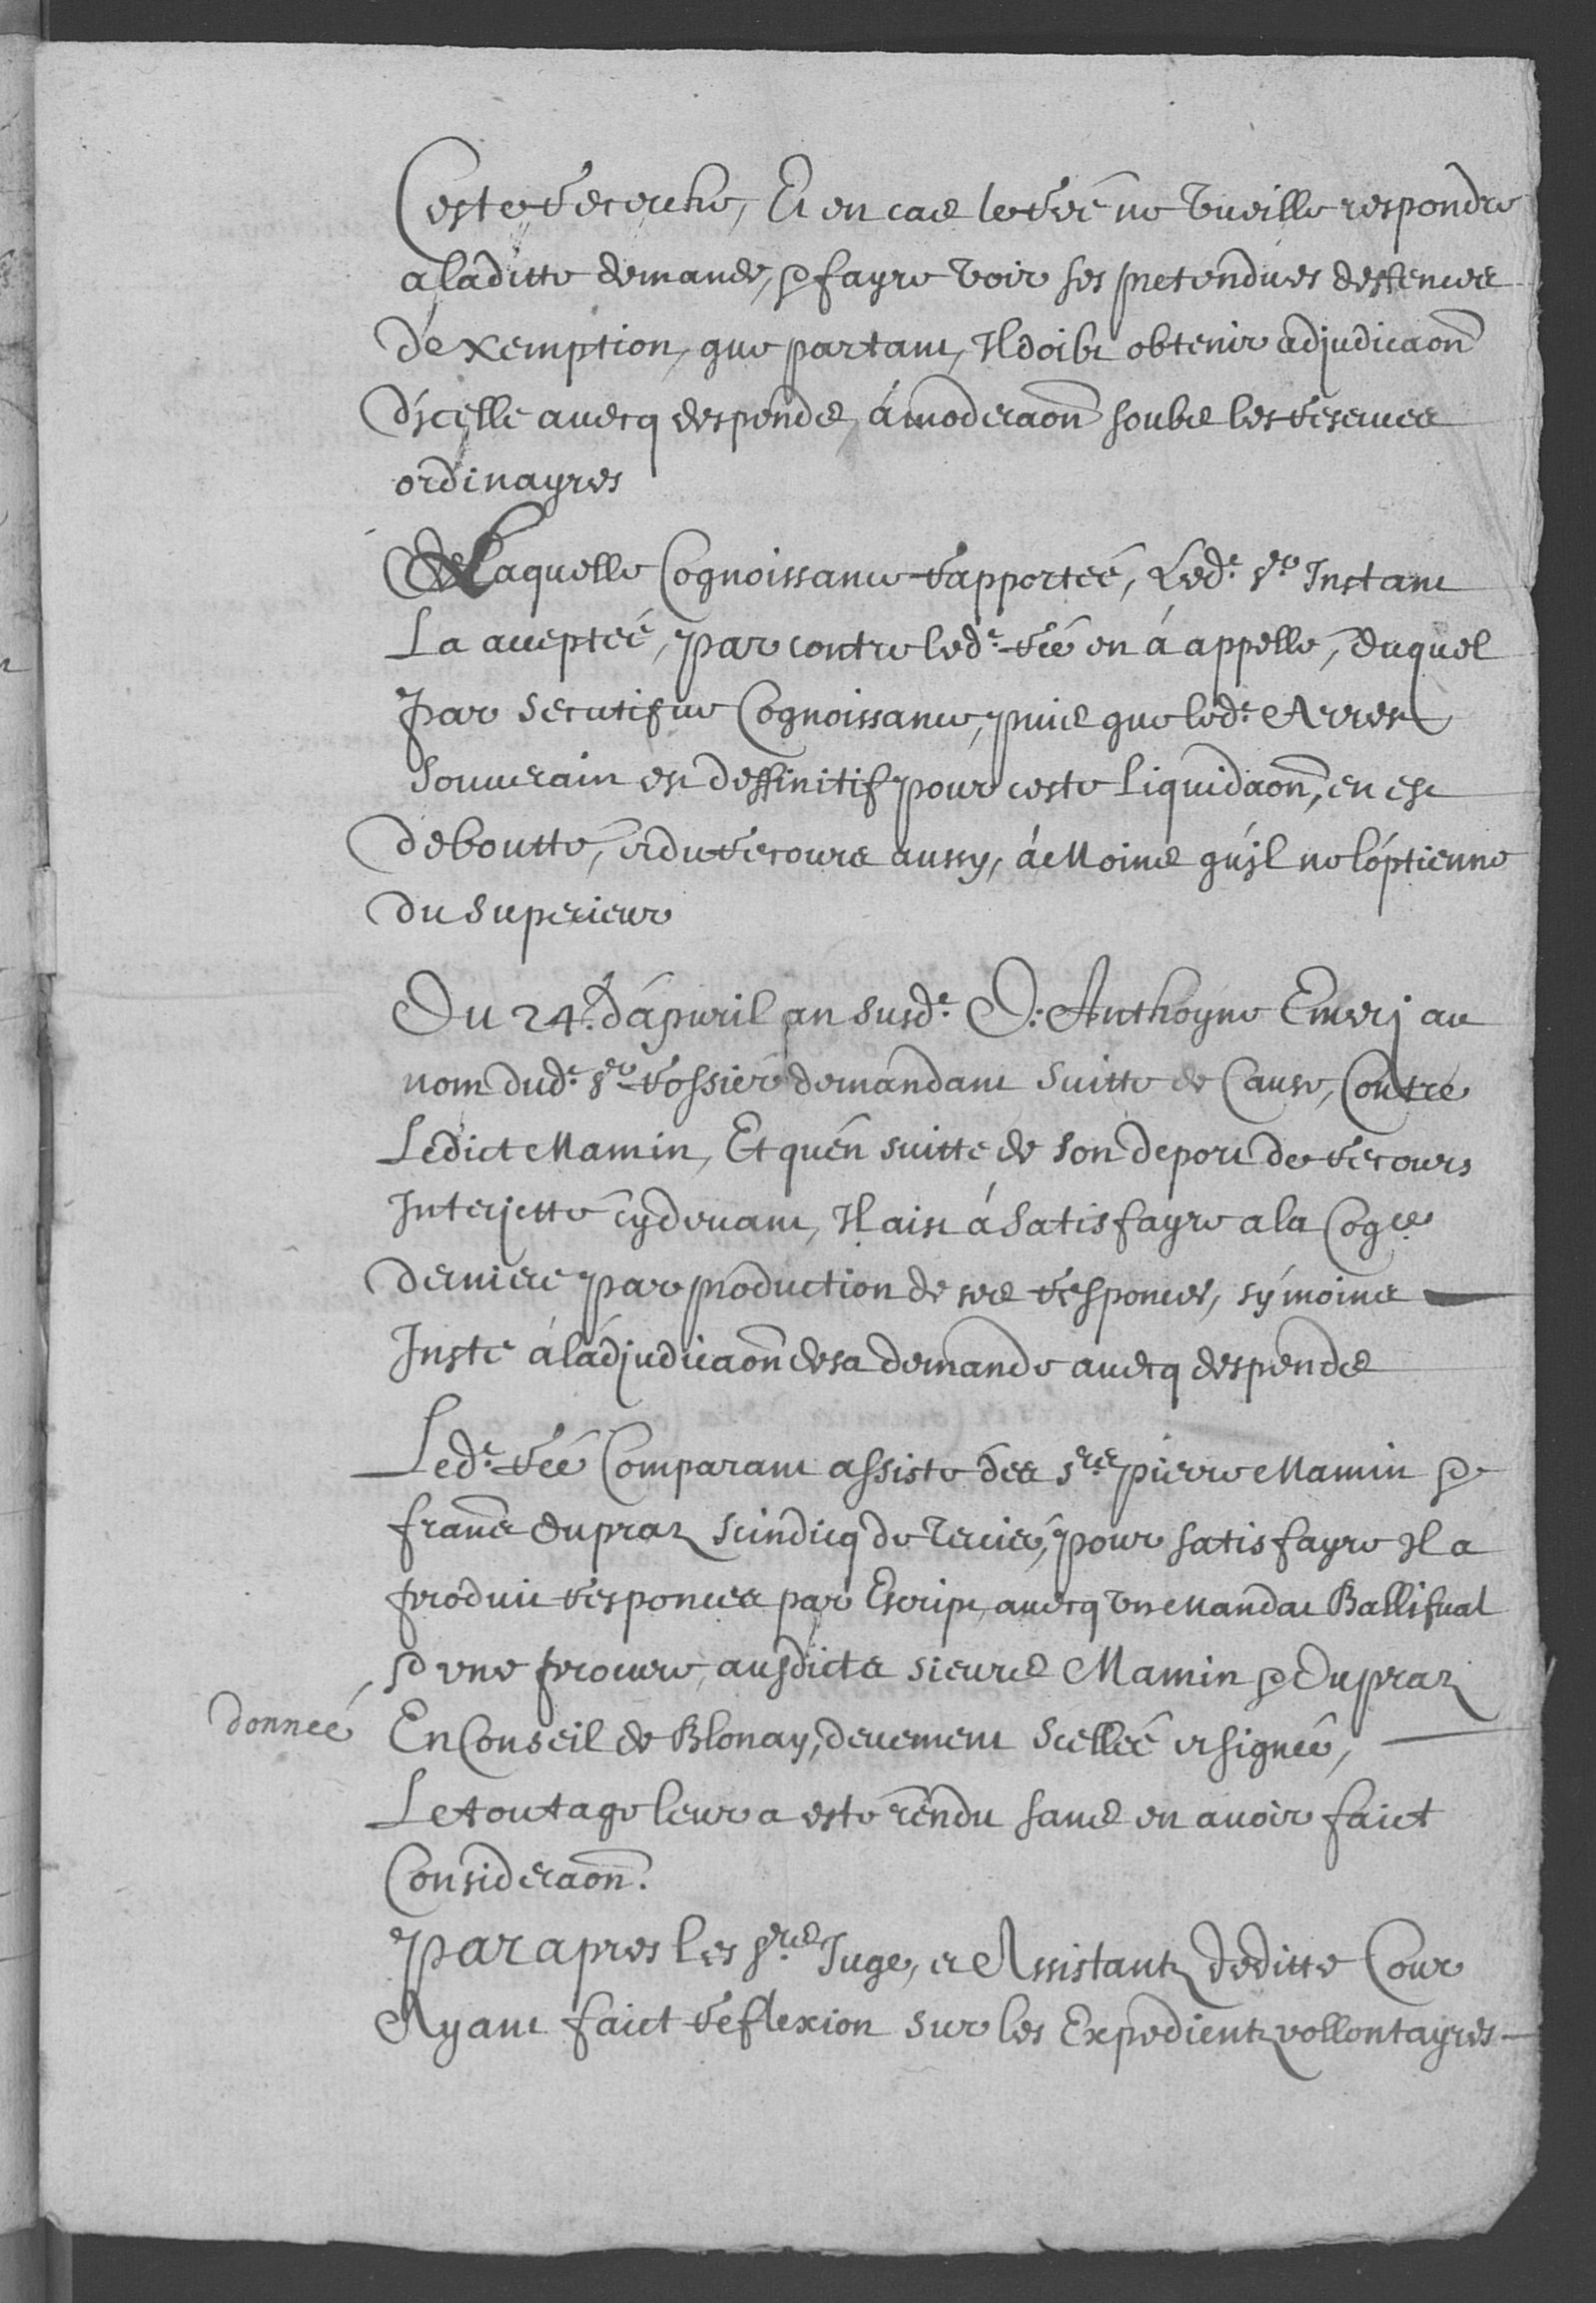 Ceste recerche, Et en cas le rée ne vueille respondre
a laditte demande, & fayre voir ses pretendues deffences
d'exemption, que partant, Il doibt obtenir adjudicaon
d'icelle avecq despends, à moderaon soubs les reserves
ordinayres
Laquelle Cognoissance rapportée, Led.t Sr Instant
La acceptée, par contre led.t rée en à appellé, duquel
par secutifve Cognoissance, puis que led.t Arrest
Souverain est deffinitif pour ceste liquidaon, en est
deboutté, et du recours aussy, à Moins qu'jl ne l'optienne
du Superieur
Du 24.e d'apvril an susd.t D: Anthoyne Emerj au
nom dud.t Sr Rossier demandant suitte de Cause, Contre
Ledict Mamin, Et qu'en suitte de son deport de recours
Interjetté cydevant, Il aist à Satisfayre a la Cogce
derniere par production de ses responces, sy moins
Insté à l'adjudicaon de sa demande avecq despends
Led.t rée Comparant assisté des srs pierre Mamin &
frans Dupraz scindicq de Vevies, pour satisfayre Il a
produit responces par Escript, avecq un Mandat Ballifval
& une procure, ausdicts sieurs Mamin & Dupraz
donnée En Conseil de Blonay, devement Scellée et signée,
Le tout age leur a esté rendu sans en avoir faict
Consideraon.
Par apres les srs Juge, et Assistantz deditte Cour
Ayant faict reflexion sur les Expedientz vollontayres